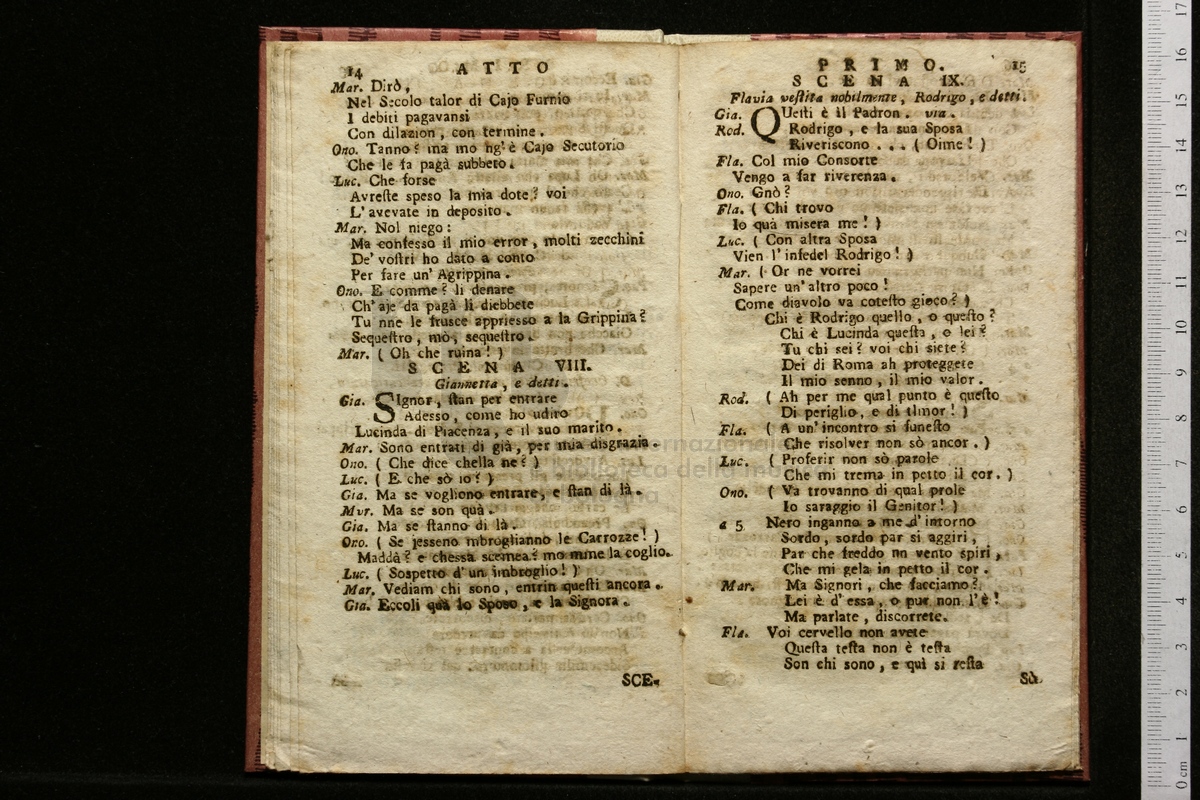 14 ATTO
Mar. Dirò,
Nel Secolo talor di Cajo Furnio
I debiti pagavansi
Con dilazion, con termine.
Ono. Tanno? ma mo ng' è Cajo Secutorio
Che le fa pagà subbeto.
Luc. Che forse
Avreſte speso la mia dote? voi
L' avevate in deposito.
Mar. Nol niego:
Ma confesso il mio error, molti zecchini
De' voſtri ho dato a conto
Per fare un' Agrippina.
Ono. E comme? li denare
Ch' aje da pagà li diebbete
Tu nne le frusce appriesso a la Grippina?
Sequeſtro, mò, sequeſtro.
Mar. ( Oh che ruina! )
SCENA VIII.
Giannetta, e detti.
Gia. SIgnor, ſtan per entrare
Adesso, come ho udito
Lucinda di Piacenza, e il suo marito.
Mar. Sono entrati di già, per mia disgrazia.
Ono. ( Che dice chella ne? )
Luc. ( E che sò io? )
Gia. Ma se vogliono entrare, e ſtan di là.
Mar. Ma se son quà.
Gia. Ma se ſtanno di là.
Ono. ( Se jesseno mbroglianno le Carrozze! )
Maddà? e chessa scemea? mo mme la coglio.
Luc. ( Sospetto d' un imbroglio! )
Mar. Vediam chi sono, entrin queſti ancora.
Gia. Eccoli quà lo Sposo, e la Signora.
SCE-
PRIMO. 15
SCENA IX.
Flavia veſtita nobilmente, Rodrigo, e detti.
Gia. QUeſti è il Padron. via.
Rod. Rodrigo, e la sua Sposa
Riveriscono ... ( Oime! )
Fla. Col mio Consorte
Vengo a far riverenza.
Ono. Gnò?
Fla. ( Chi trovo
Io quà misera me! )
Luc. ( Con altra Sposa
Vien l' infedel Rodrigo! )
Mar. ( Or ne vorrei
Sapere un' altro poco!
Come diavolo va coteſto gioco? )
Chi è Rodrigo quello, o queſto?
Chi è Lucinda queſta, o lei?
Tu chi sei? voi chi siete?
Dei di Roma ah proteggete
Il mio senno, il mio valor.
Rod. ( Ah per me qual punto è queſto
Di periglio, e di timor! )
Fla. ( A un' incontro sì funeſto
Che risolver non sò ancor. )
Luc. ( Proferir non sò parole
Che mi trema in petto il cor. )
Ono. ( Va trovanno di qual prole
Io saraggio il Genitor! )
a 5. Nero inganno a me d' intorno
Sordo, sordo par si aggiri,
Par che freddo un vento spiri,
Che mi gela in petto il cor.
Mar. Ma Signori, che facciamo?
Lei è d' essa, o pur non l' è!
Ma parlate, discorrete.
Fla. Voi cervello non avete
Queſta teſta non è teſta
Son chi sono, e quì si reſta